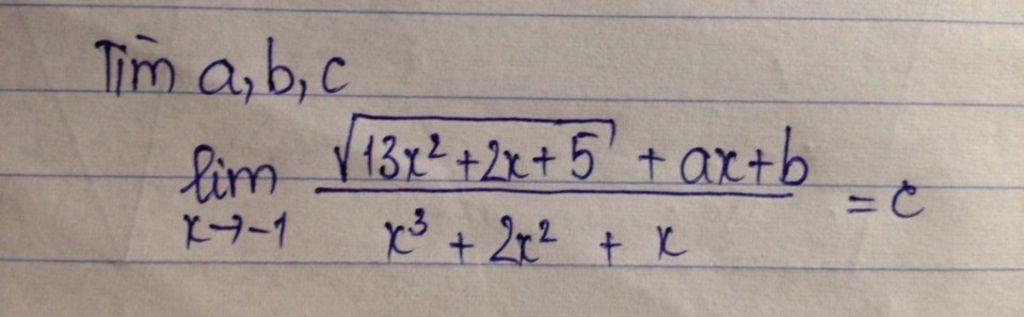 Tìm a, b, c
lim x→-1 (√(13x² + 2x + 5) + ax + b) / (x³ + 2x² + x) = c